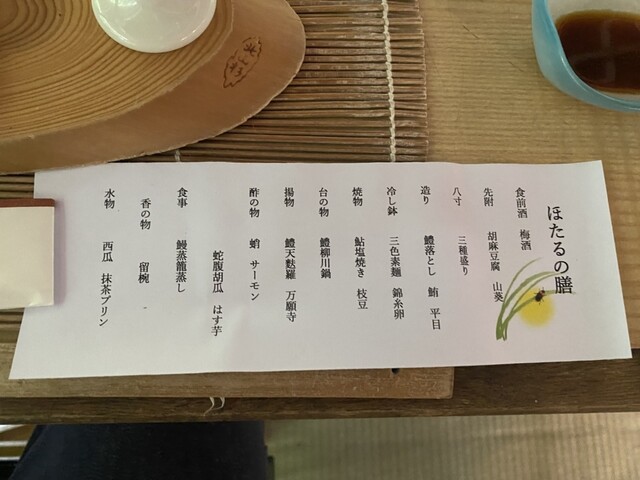 ほたるの膳
食前酒 梅酒
先附 胡麻豆腐 山葵
八寸 三種盛り
造り 鱧落とし 鮪 平目
冷し鉢 三色素麺 錦糸卵
焼物 鮎塩焼き 枝豆
台の物 鱧柳川鍋
揚物 鱧天麩羅 万願寺
酢の物 蛸 サーモン
蛇腹胡瓜 はす芋
食事 鰻蒸籠蒸し
香の物 留椀
水物 西瓜 抹茶プリン